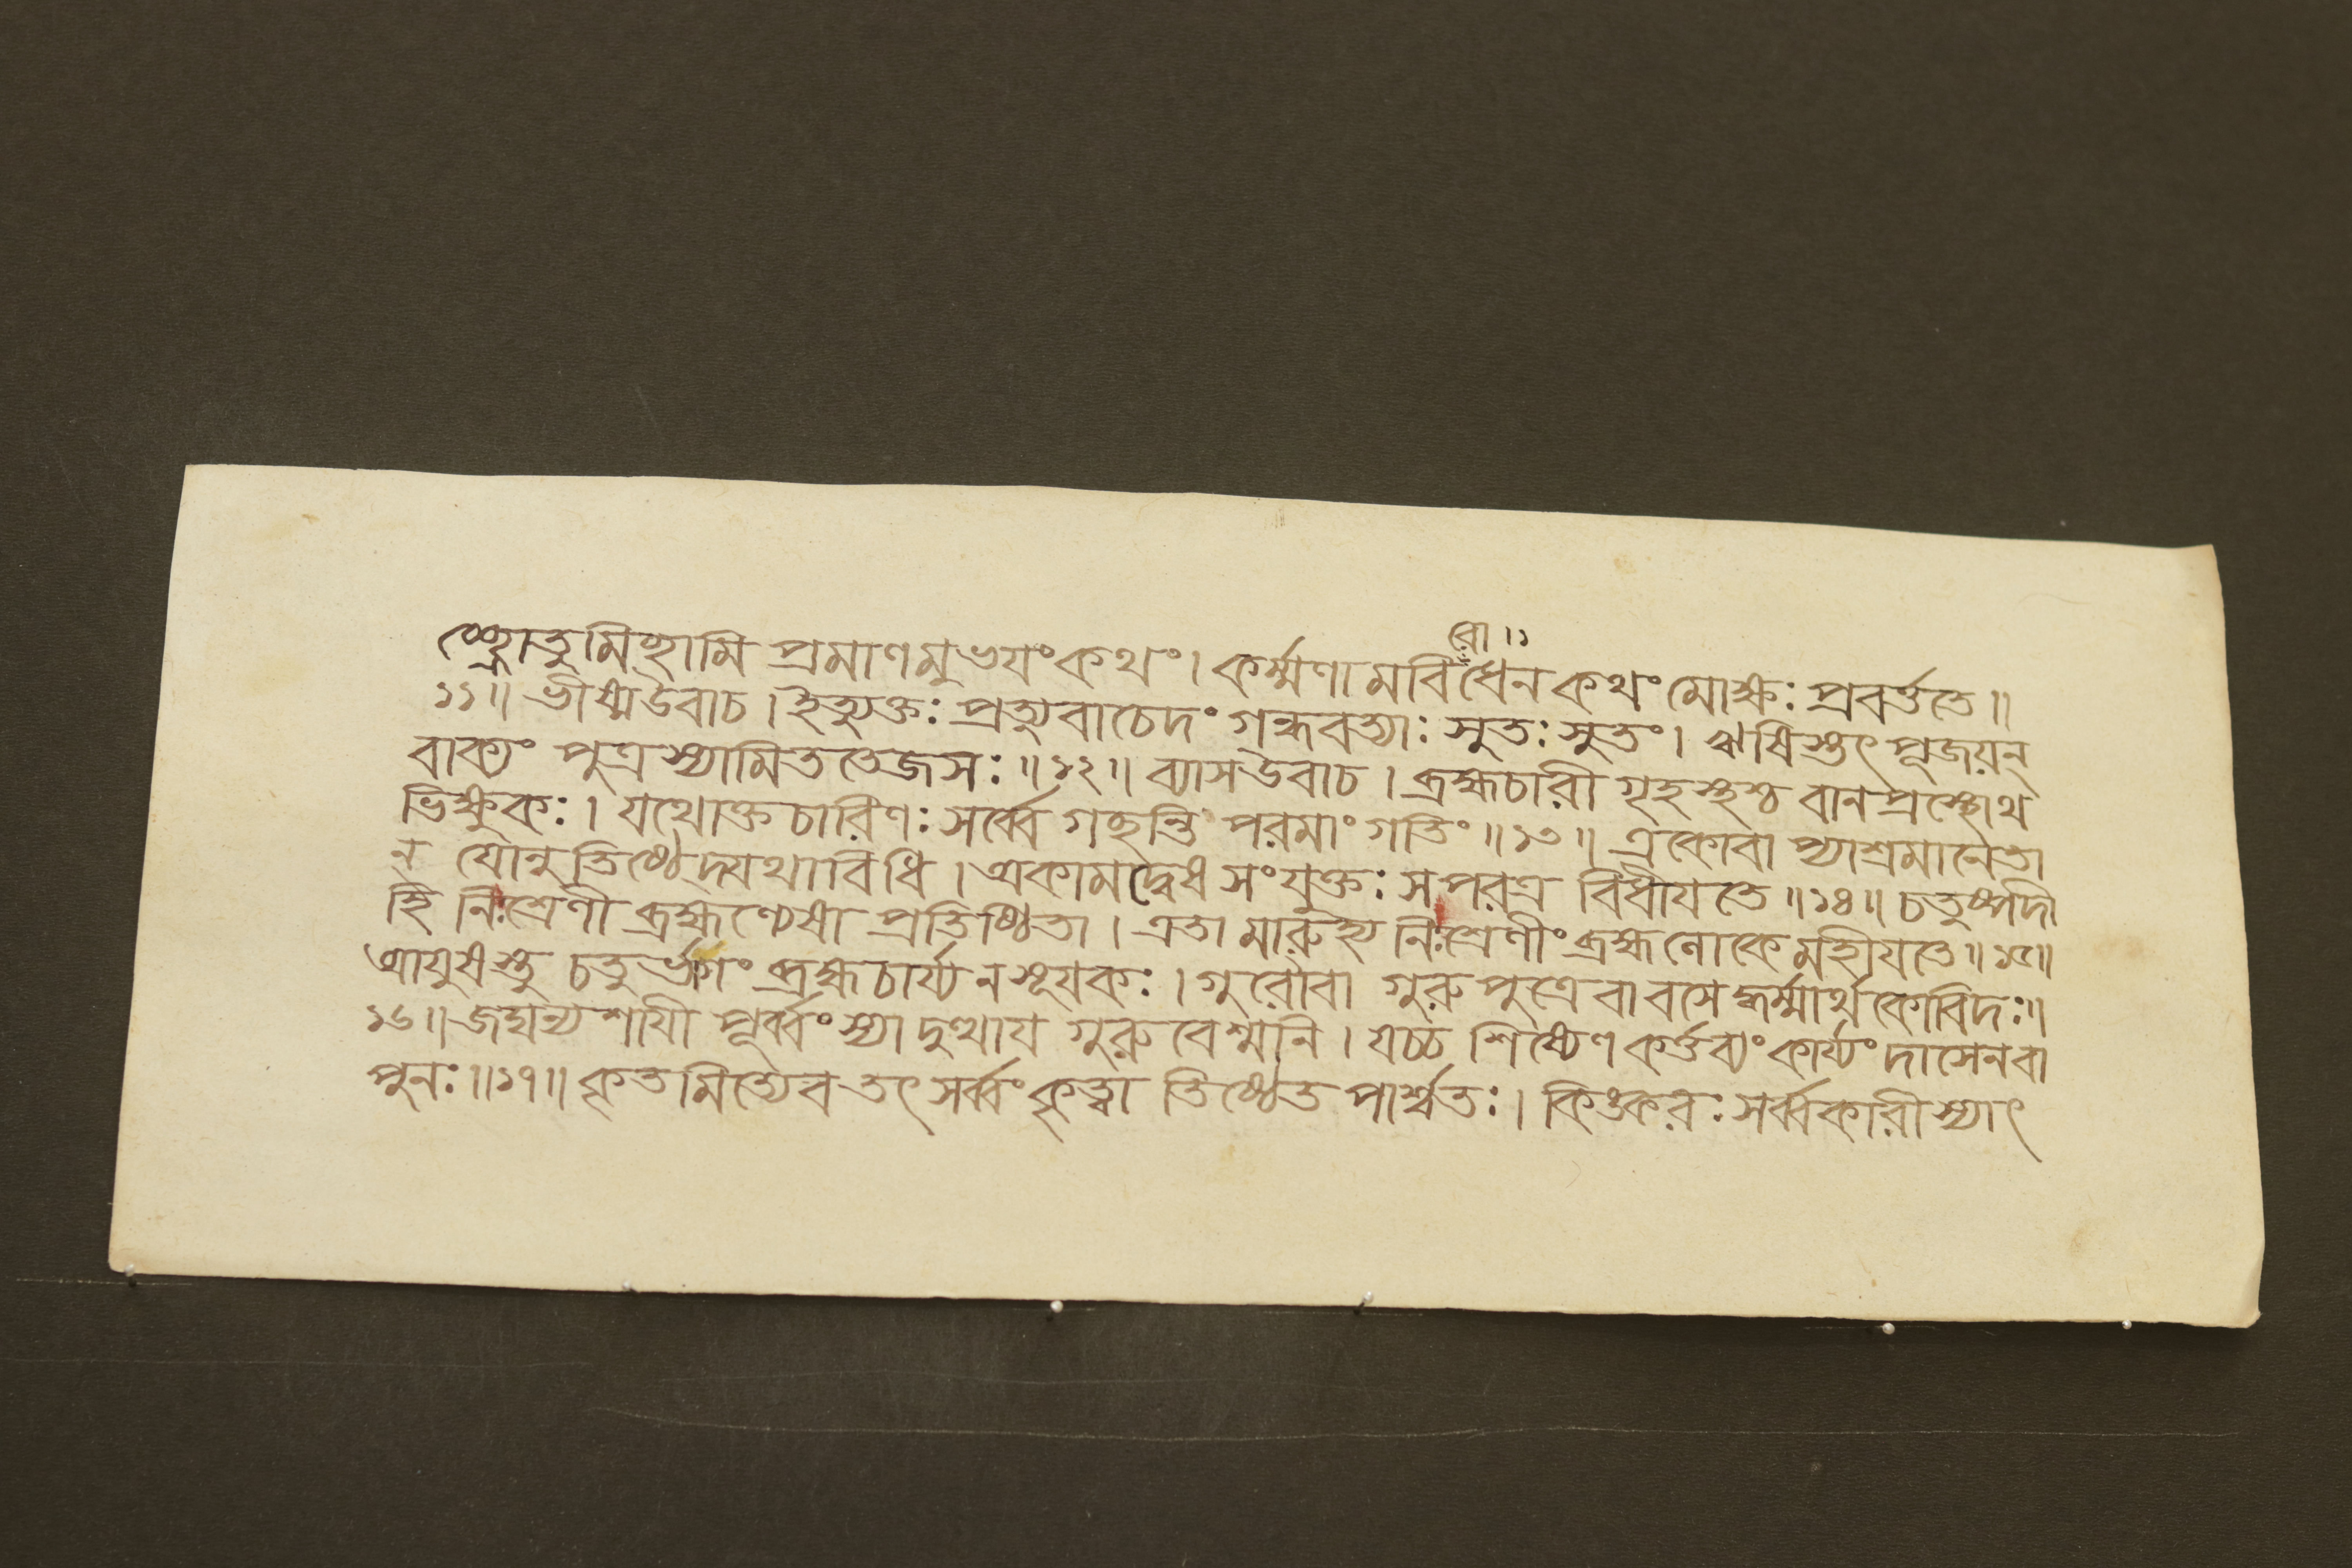 রো ।১
চ্ছ্রোতুমিচ্ছামি প্রমাণমুভয়ং কথং। কর্ম্মণামবিধেন কথং মোক্ষঃ প্রবর্ত্ততে॥
১১॥ ভীষ্মউবাচ। ইত্যুক্তঃ প্রত্যুবাচেদং গন্ধবত্যাঃ সুতঃ সুতং। ঋষিস্তৎ পূজয়ন্
বাক্যং পুত্রস্যামিততেজসঃ॥১২॥ ব্যাসউবাচ। ব্রহ্মচারী গৃহস্থশ্চ বানপ্রস্থোথ
ভিক্ষুকঃ। যথোক্তচারিণঃ সর্ব্বে গচ্ছন্তি পরমাং গতিং॥১৩॥ একোবা প্যাশ্রমানেতা
ন যোনুতিষ্ঠেদ্যথাবিধি। অকামদ্বেষসংযুক্তঃ সপরত্র বিধীয়তে॥১৪॥ চতুষ্পদী
হি নিঃশ্রেণী ব্রহ্মণ্যেষা প্রতিষ্ঠিতা। এতামারুহ্য নিঃশ্রেণীং ব্রহ্মলোকে মহীয়তে॥১৫॥
আয়ুষস্তু চতুর্ভাগং ব্রহ্মচার্য্যনসূয়কঃ। গুরৌবা গুরুপুত্রেবা বসেদ্ধর্ম্মার্থকোবিদঃ॥
১৬॥ জঘন্যশায়ী পূর্ব্বং স্যাদুত্থায় গুরুবেশ্মনি। যচ্চ শিষ্যেণ কর্ত্তব্যং কার্য্যং দাসেনবা
পুনঃ॥১৭॥ কৃতমিত্যেব তৎ সর্ব্বং কৃত্বা তিষ্ঠেত পার্শ্বতঃ। কিঙ্করঃ সর্ব্বকারীস্যাৎ